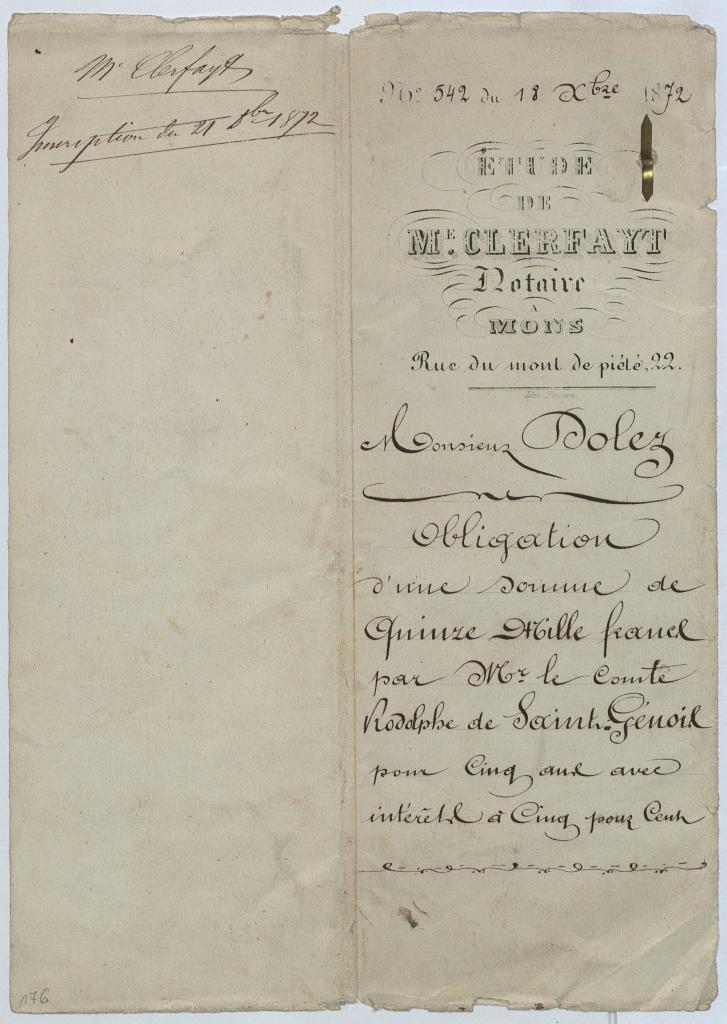 Me Clerfayt
Inscription du 21 Xbre 1872
No 542 du 18 Xbre 1872
ÉTUDE
DE
ME. CLERFAYT
Notaire
A
MONS
Rue du mont de piété, 22.
Monsieur Dolez
Obligation
d'une somme de
Quinze Mille francs
par Mr le Comte
Rodolphe de Saint-Génois
pour Cinq ans avec
intérêts à Cinq pour Cent
176